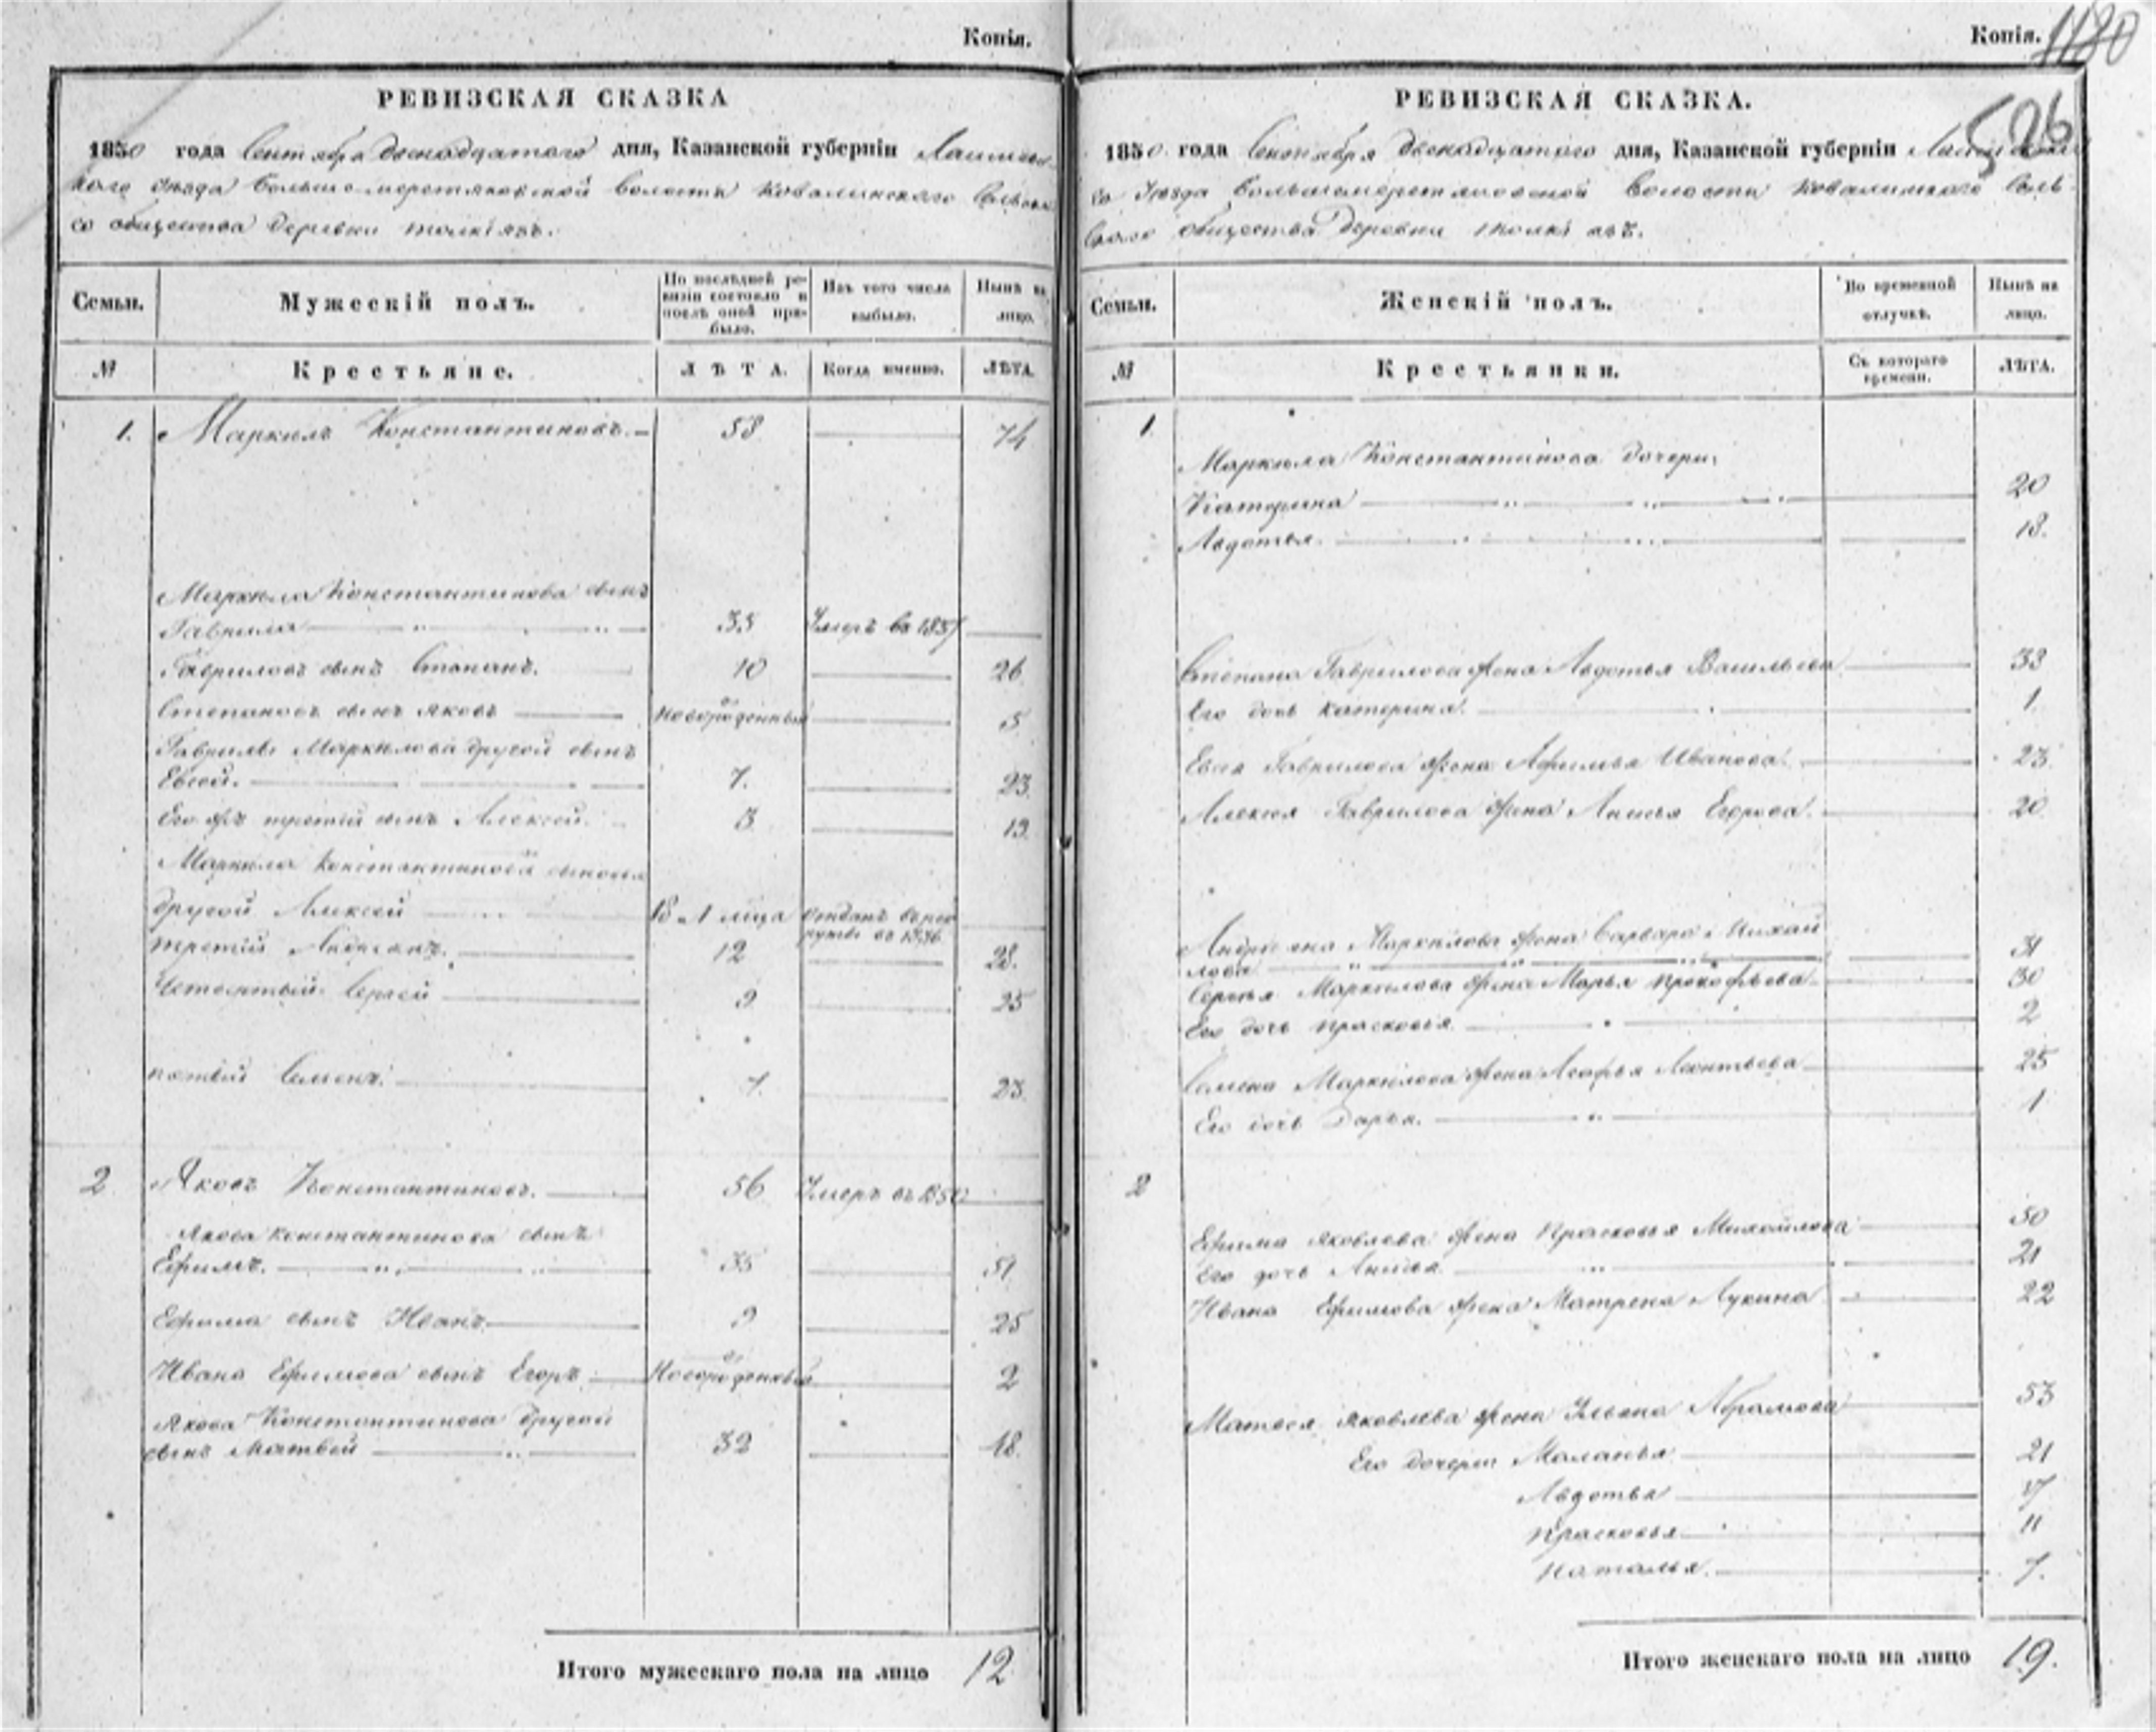 Копія.
РЕВИЗСКАЯ СКАЗКА
1850 года Сентября двенадцатого дня, Казанской губерніи Лаишевс
каго уезда Большемеретяковской волости Ковалинскаго Сельска
со общества деревни
Семьи.
Мужескій полъ.
По послѣдней ре-
визіи состояло и
послѣ оной при-
было.
Изъ того числа
выбыло.
Нынѣ на
лицо.
№
Крестьяне.
ЛѢТА.
Когда именно.
ЛѢТА.
1. Маркилъ Константиновъ. 58 74
Маркила Константинова сынъ
Гаврила 35 Умеръ въ 1837
Гавриловъ сынъ Степанъ. 10 26
Степановъ сынъ Яковъ новорожденный 5
Гаврилы Маркилова другой сынъ
Евсей. 7. 23.
Его же третій сынъ Алексей. 3 19
Маркила Константинова сыновья
другой Алексей отданъ въ рек
руты въ 1836
третій Андреянъ. 12 28.
Четвертый Сергей 9 25
пятый Семенъ. 7. 23.
2 Яковъ Константиновъ. 56 Умеръ въ 1850
Якова Константинова сынъ
Ефимъ. 35 51
Ефима сынъ Иванъ 9 25
Ивана Ефимова сынъ Егоръ Новорожденный 2
Якова Константинова другой
сынъ Матвей 32 48.
Итого мужескаго пола на лицо 12
Копія. 1180
526
РЕВИЗСКАЯ СКАЗКА.
1850 года Сентября двенадцатого дня, Казанской губерніи
со Уезда Большемеретяковской волости Ковалинскаго Сель
скаго общества деревни
Семьи.
Женскій полъ.
Во временной
отлучкѣ.
Нынѣ на
лицо.
№
Крестьянки.
Съ котораго
времени.
ЛѢТА.
1 Маркила Константинова дочери,
Катерина 20
Авдотья 18.
Степана Гаврилова жена Авдотья Васильева 33
Его дочь Катерина. 1
Евсея Гаврилова жена Афимья Иванова. 23.
Алексея Гаврилова жена Анисья Егорова. 20
Андреяна Маркилова жена Варвара Михай
лова 31
Сергея Маркилова жена Марья Прокофьева 30
Его дочь Прасковья. 2
Семена Маркилова жена Агафья Леонтьева 25
Его дочь Дарья. 1
2
Ефима Яковлева жена Прасковья Михайлова 50
Его дочь Анисья 21
Ивана Ефимова жена Матрена Лукина 22
Матвея Яковлева жена Ульяна Абрамова 53
Его дочери Маланья 21
Авдотья 17
Прасковья 11
Наталья. 7.
Итого женскаго пола на лицо 19.